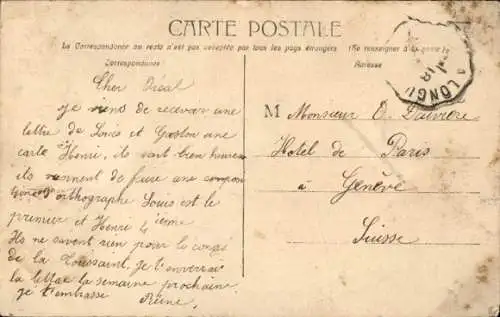 CARTE POSTALE
La Correspondance au recto n'est pas acceptée par tous les pays étrangers (Se renseigner à la poste)
Correspondance
Adresse
LONGU
Cher
je viens de recevoir une
lettre de Louis et Gaston une
carte Henri, ils sont bien heureux
ils viennent de faire une
orthographe Louis est le
premier et Henri le ième
Ils ne savent rien pour le congé
de la Toussaint, je t'enverrai
la lettre la semaine prochaine
je t'embrasse Reine
M Monsieur O.
Hotel de Paris
à Genève
Suisse